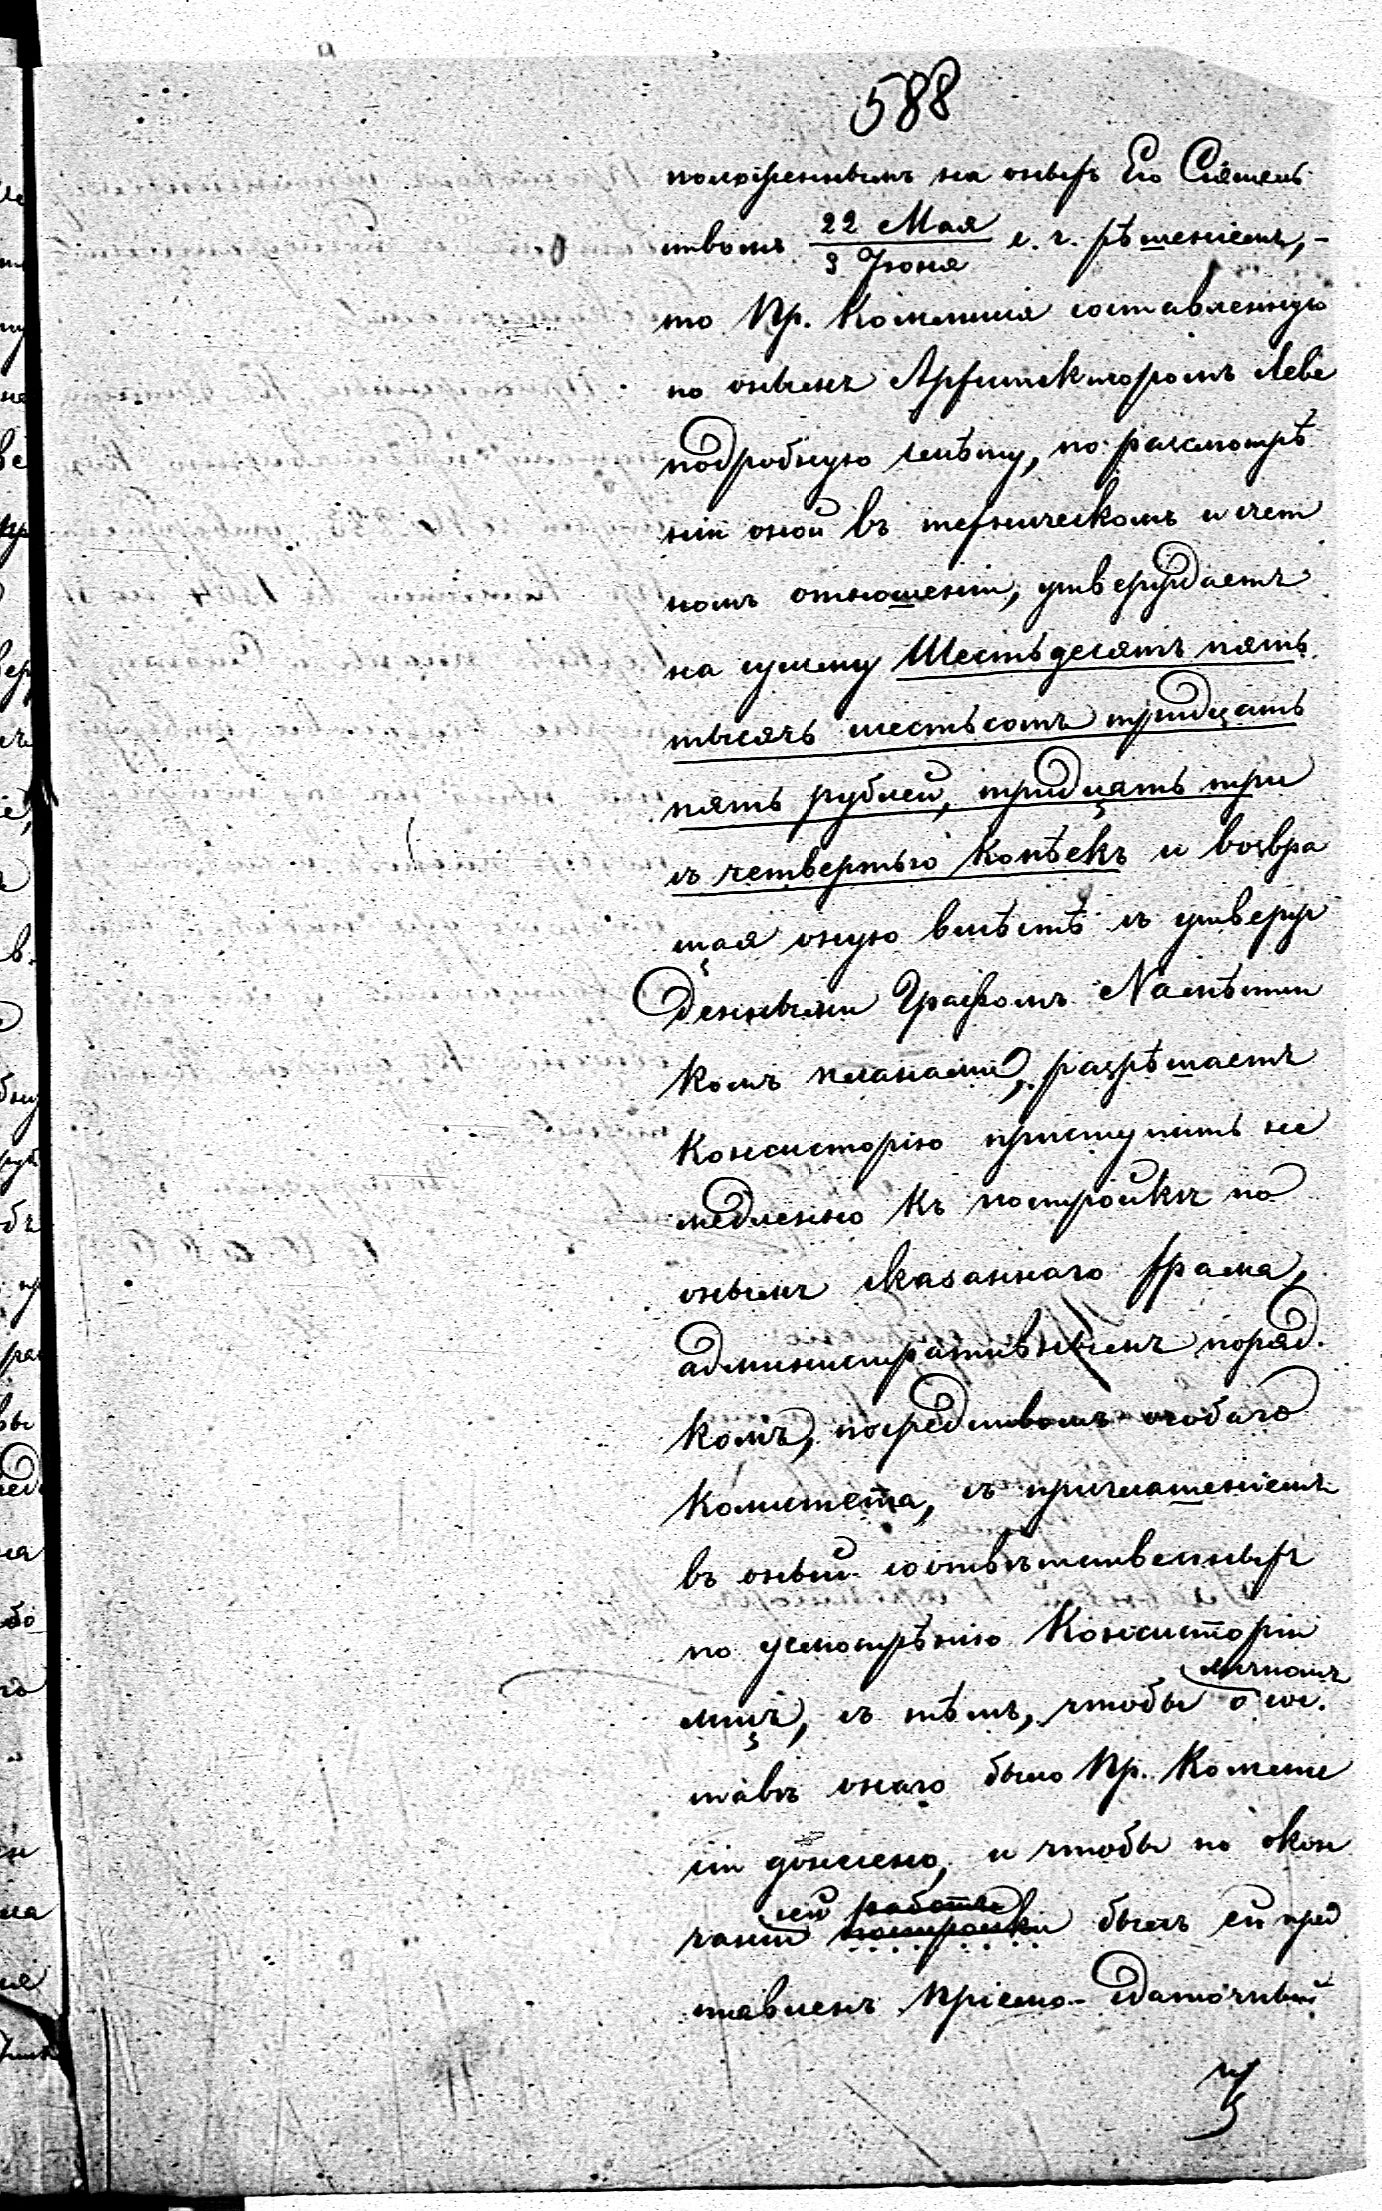 588
положеннымъ на оныхъ Его Сіятель
ствомъ 22 Мая / 3 Іюня с. г. рѣшеніемъ, -
то Пр. Коммисія составленную
по онымъ Архитекторомъ Леве
подробную смѣту, по разсмотрѣ
ніи оной въ техническомъ и счет
номъ отношеніи, утверждаетъ
на сумму Шестьдесятъ пять
тысячъ шестьсотъ тридцать
пять рублей, тридцать три
съ четвертью копѣекъ и возвра
щая оную вмѣстѣ съ утверж
денными Графомъ Намѣстни
комъ планами, разрѣшаетъ
Консисторію приступить не
медленно къ постройкѣ по
онымъ сказаннаго храма,
административнымъ поряд.
комъ, посредствомъ особаго
Комитета, съ приглашеніемъ
въ оный соотвѣтственныхъ
по усмотрѣнію Консисторіи
личномъ
лицъ, съ тѣмъ, чтобы о сос.
тавѣ онаго было Пр. Коммис
іи донесено, и чтобы по окон
сей работы
чаніи постройки былъ ей пред
ставленъ Пріемо-сдаточный